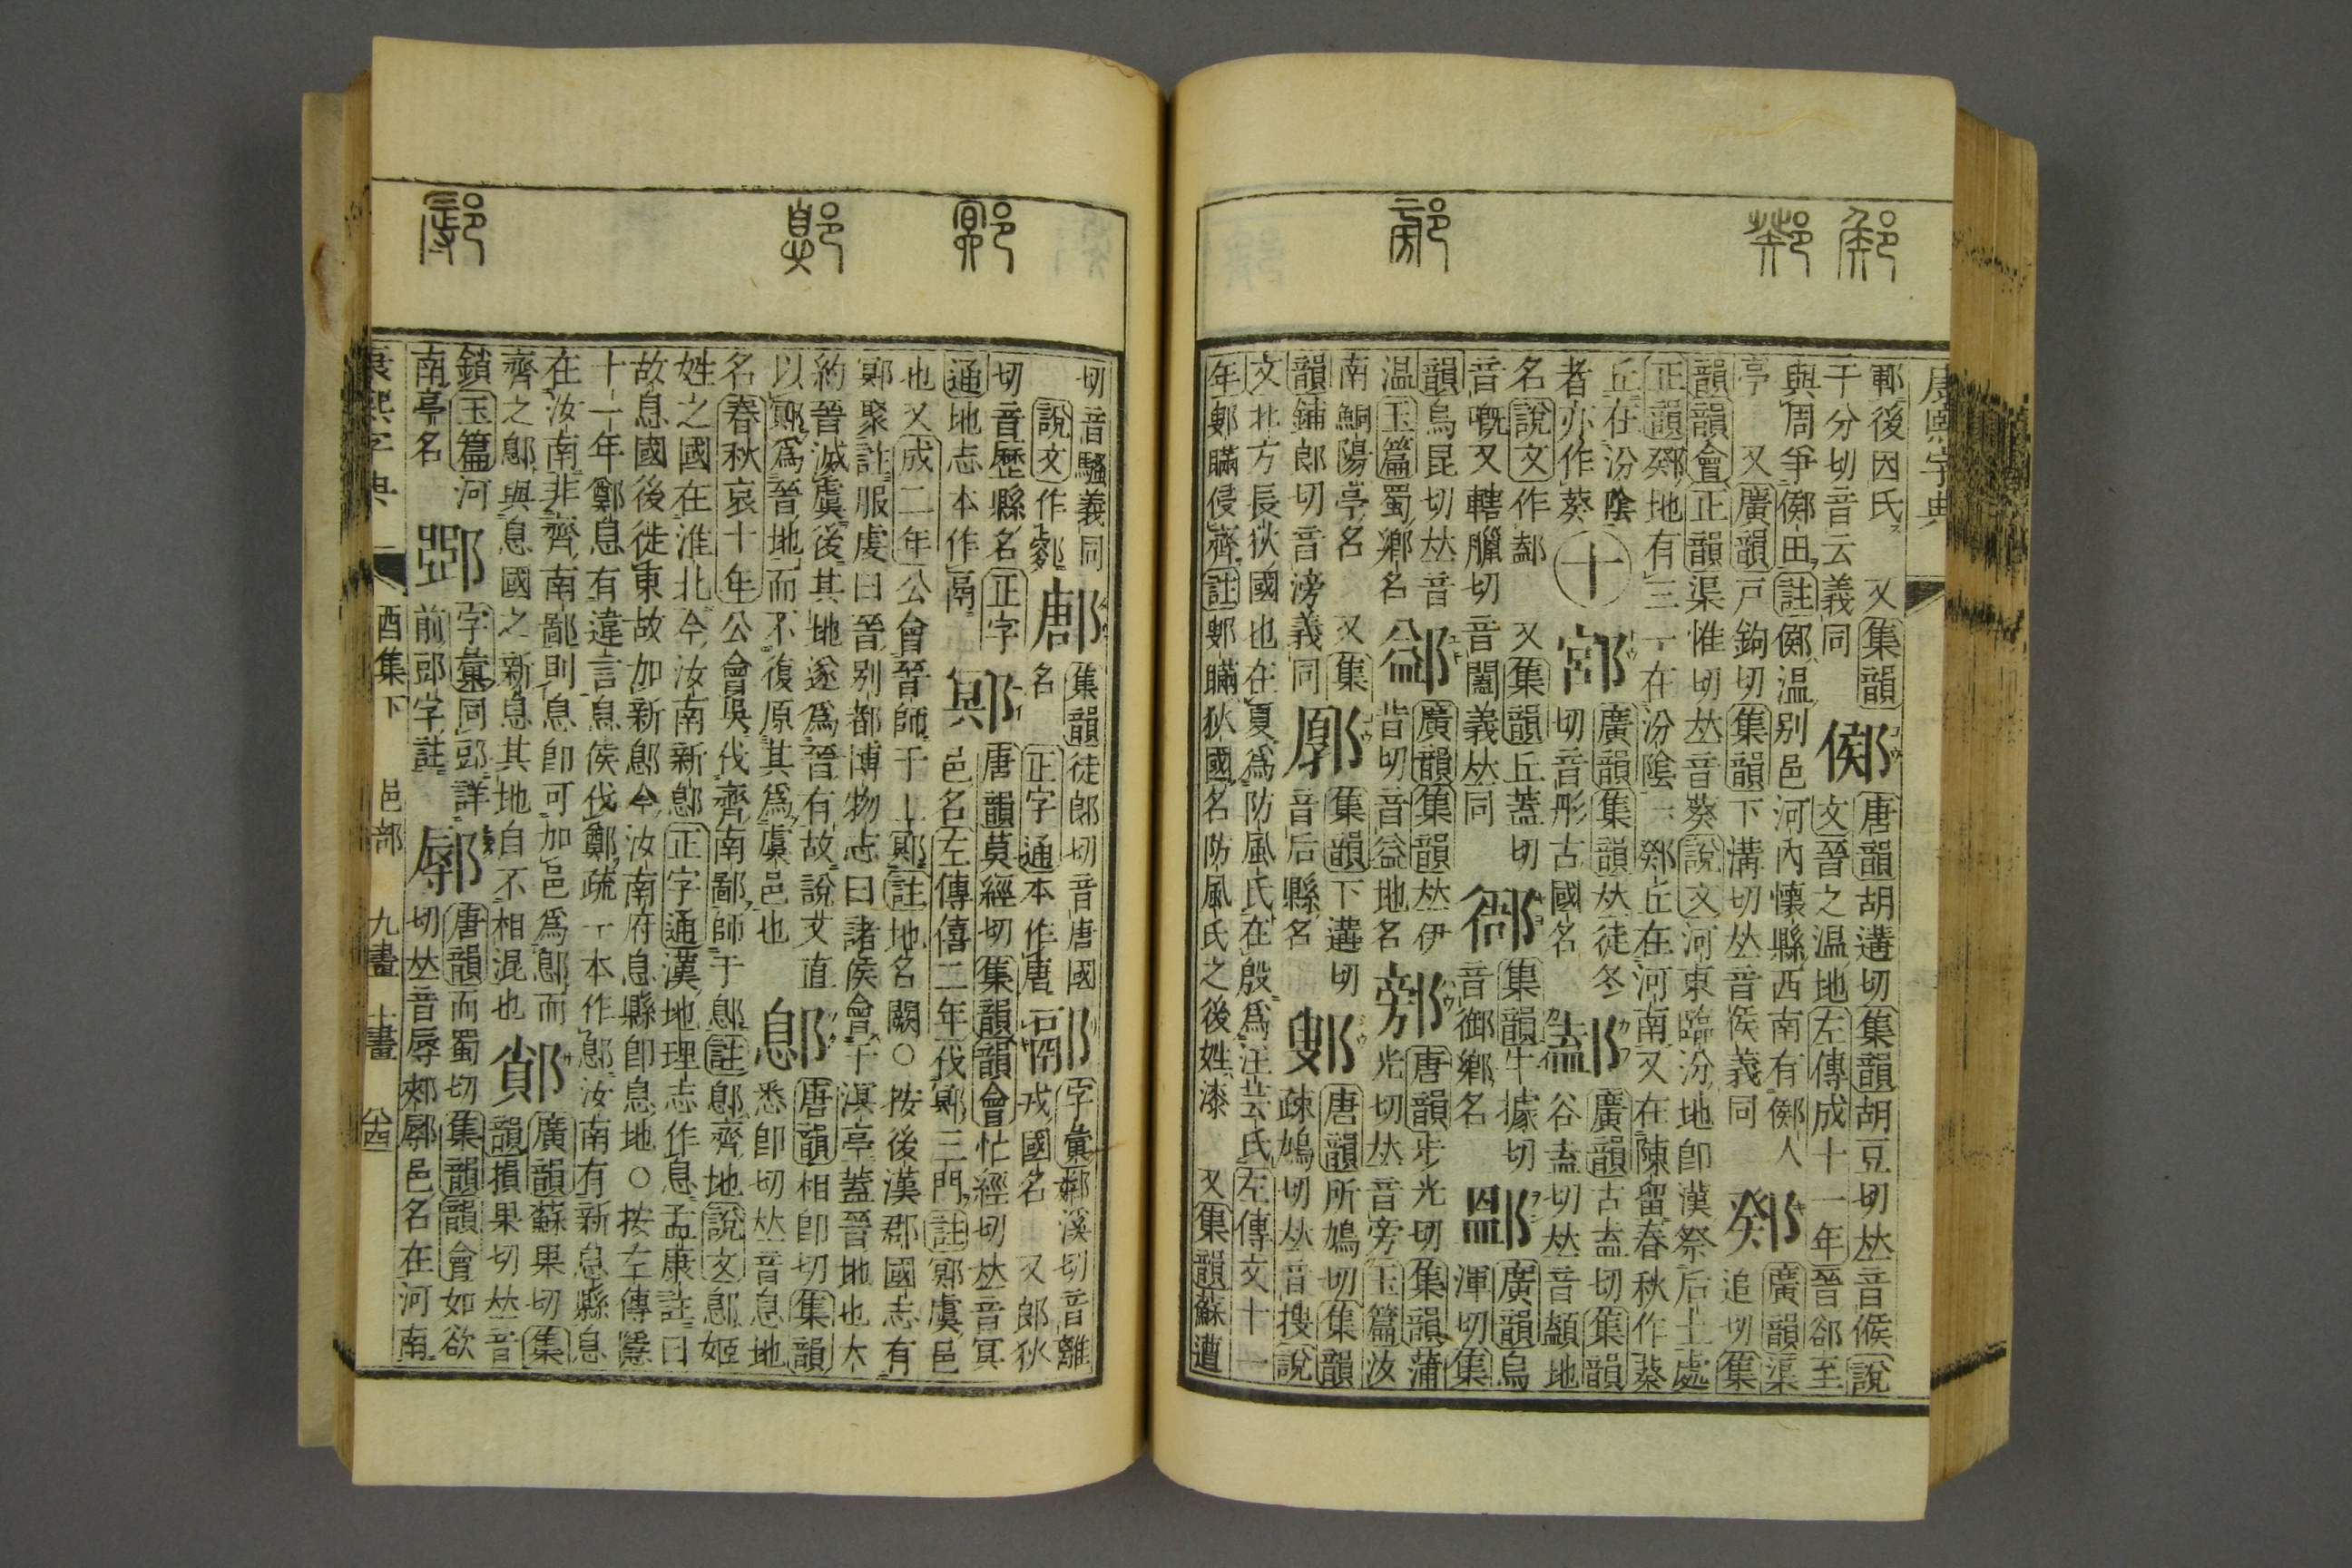 康熙字典
鄆後因氏 又集韻 鄇 唐韻胡遘切集韻胡豆切𠀤音候說
于分切音云義同 文晉之温地左傳成十一年晉郤至
與周爭鄇田註鄇温别邑河內懷縣西南有鄇人 鄈 廣韻渠
亭 又廣韻戸鉤切集韻下溝切𠀤音侯義同 追切集
韻韻會正韻渠惟切𠀤音葵說文河東臨汾地卽漢祭后土處
正韻鄈地有三一在汾陰一鄈丘在河南又在陳留春秋作葵
丘在汾陰 十 廣韻集韻𠀤徒冬 廣韻古盍切集韻
者亦作葵 切音彤古國名 谷盍切𠀤音顩地
名說文作 又集韻丘蓋切 集韻牛據切 廣韻烏
音嘅又轄臘切音闔義𠀤同 音御鄉名 渾切集
韻烏昆切𠀤音 廣韻集韻𠀤伊 唐韻步光切集韻蒲
温玉篇蜀鄉名 昔切音益地名 光切𠀤音旁玉篇汝
南鮦陽亭名 又集 集韻下遘切 鄋 唐韻所鳩切集韻
韻鋪郎切音滂義同 音后縣名 疎鳩切𠀤音搜說
文北方長狄國也在夏爲防風氏在殷爲汪芒氏左傳文十一
年鄋瞞侵齊註鄋瞞狄國名防風氏之後姓漆 又集韻蘇遭
切音騷義同 鄌 集韻徒郎切音唐國 字彙鄰溪切音離
說文作 名 正字通本作唐 戎國名 又郎狄
切音歷縣名正字 鄍 唐韻莫經切集韻韻會忙經切𠀤音冥
通地志本作鬲 邑名左傳僖二年伐鄍三門註鄍虞邑
也又成二年公會晉師于上鄍註地名闕○按後漢郡國志有
鄍聚註服虔曰晉别都博物志曰諸侯會于溟亭蓋晉地也大
約晉滅虞後其地遂爲晉有故說文直 鄎 唐韻相卽切集韻
以鄍爲晉地而不復原其爲虞邑也 悉卽切𠀤音息地
名春秋哀十年公會吳伐齊南鄙師于鄎註鄎齊地說文鄎姬
姓之國在淮北今汝南新鄎正字通漢地理志作息孟康註曰
故息國後徙東故加新鄎今汝南府息縣卽息地○按左傳隱
十一年鄭息有違言息侯伐鄭疏一本作鄎汝南有新息縣息
在汝南非齊南鄙則息卽可加邑爲鄎而 廣韻蘇果切集
齊之鄎與息國之新息其地自不相混也 韻損果切𠀤音
鎖玉篇河 字彙同郖詳 鄏 唐韻而蜀切集韻韻會如欲
南亭名 前郖字註 切𠀤音辱郟鄏邑名在河南
康熙字典 酉集下 邑部 九畫 十畫